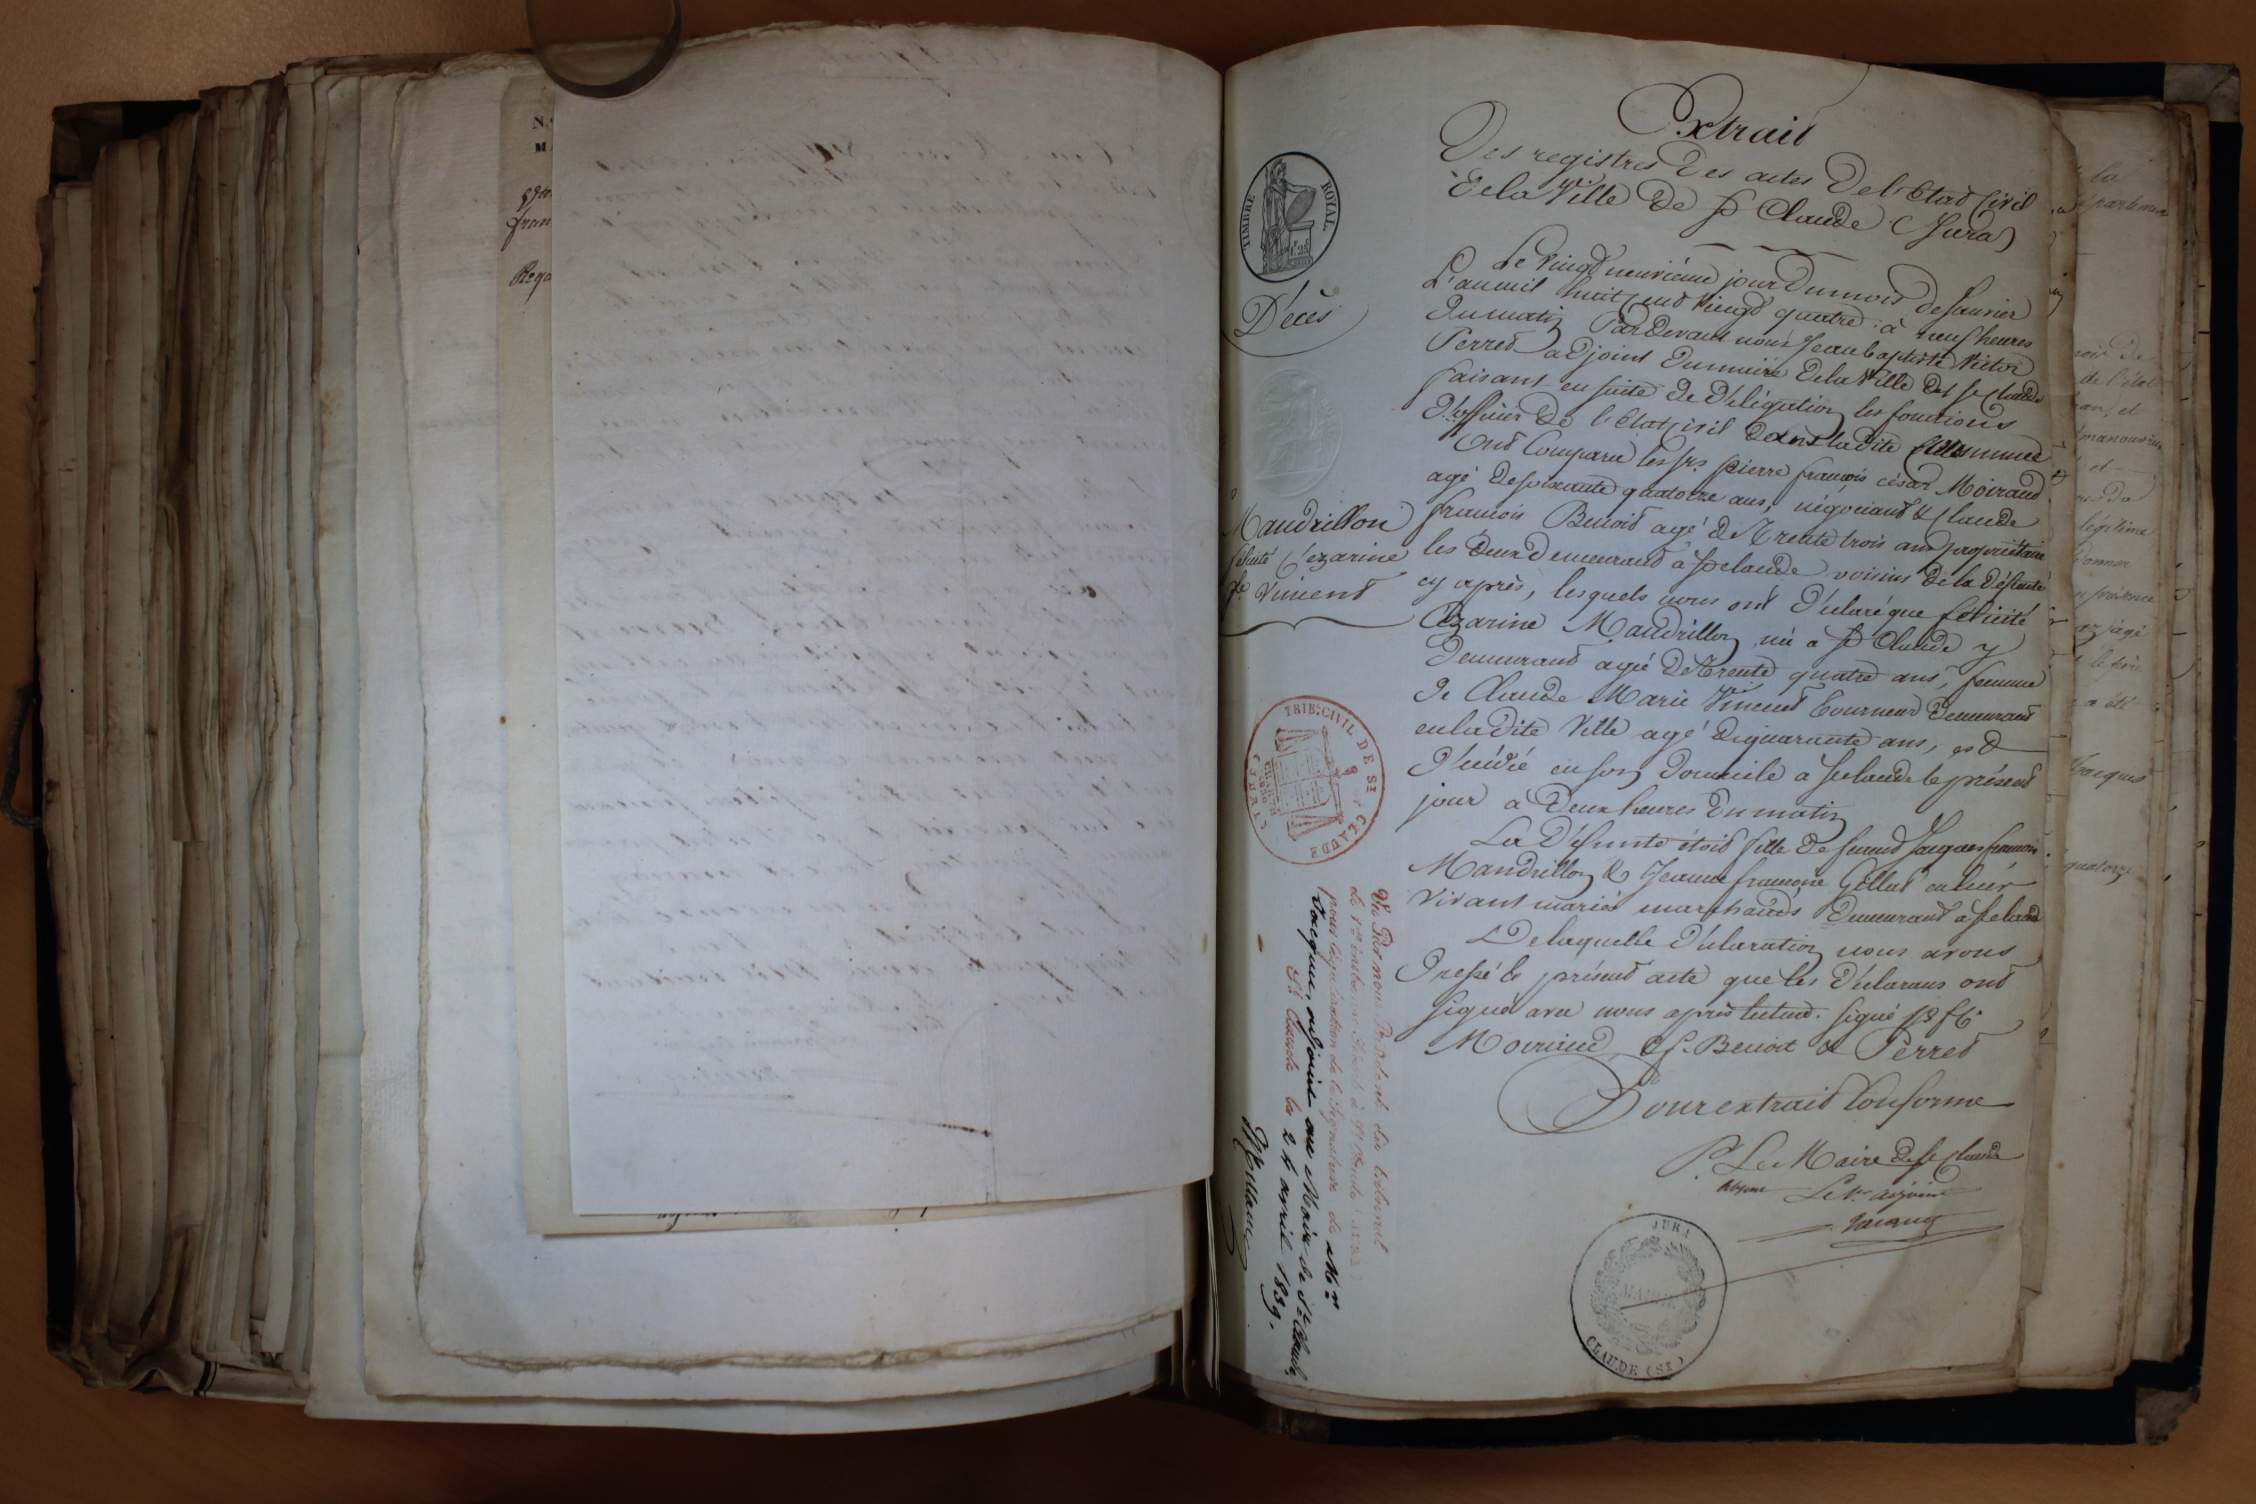 Extrait
Des registres des actes de l'Etat Civil
de la Ville de St Claude (Jura)
TIMBRE ROYAL
Décès
Le vingt neuvième jour du mois de Janvier
L'an mil huit cent vingt quatre à neuf heures
du matin Pardevant nous Jean baptiste Victor
Perret adjoint du maire de la Ville de St Claude
faisant en suite de délégation les fonctions
d'officier de l'Etat civil dans la dite Commune
Ont Comparu les srs pierre françois césar Moirand
agé de soixante quatorze ans, négociant & Claude
françois Benoit agé de trente trois ans propriétaire
les deux demeurant à St claude voisins de la défunte
cy après, lesquels nous ont déclaré que félicité
Cézarine Mandrillon née à St Claude y
demeurant agée de trente quatre ans, femme
de Claude Marie Vincent tourneur demeurant
en la dite Ville agé de quarante ans, est
décédée en son domicile à St claude le présent
jour à deux heures du matin
La défunte étoit fille de feu Jacques françois
Mandrillon & Jeanne françoise Gillet en leur
vivant mariés marchands demeurant à St claude
De laquelle déclaration nous avons
dressé le présent acte que les déclarans ont
signé avec nous après lecture. signé
Moirand, C f. Benoit & Perret
Pour extrait Conforme
Pr Le Maire de St Claude
absent Le 1er adjoint
Jacquin
JURA
MAIRIE
CLAUDE (ST)
Mandrillon
félicité Cézarine
fe Vincent
TRIB: CIVIL DE ST CLAUDE
(JURA)
CHARTE
1830
Vu Par nous Président du tribunal
de 1re instance séant à St Claude (Jura)
pour légalisation de la signature de Mr
Jacquin, adjoint au Maire de St Claude
St Claude le 24 avril 1839.